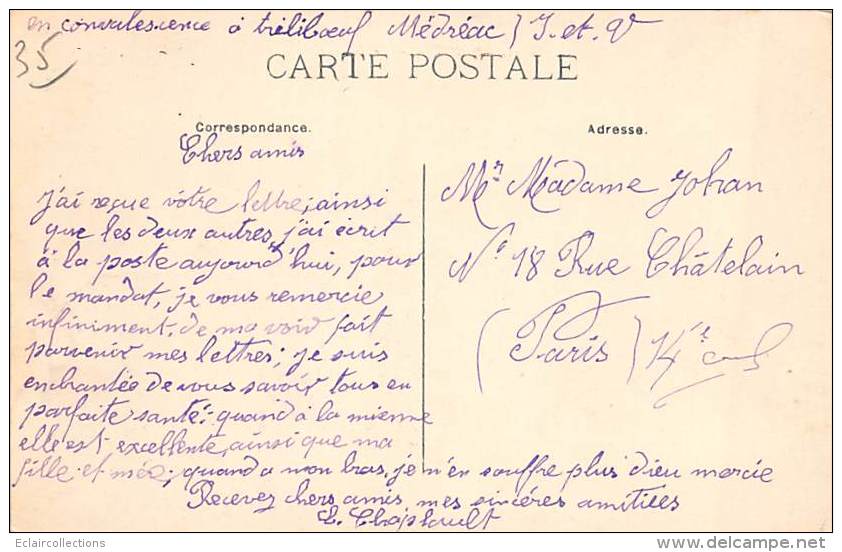 en convalescence à tréliboeuf Médréac) I. et. V
35
CARTE POSTALE
Correspondance.
Adresse.
Chers amis
j'ai reçue vôtre lettre, ainsi
que les deux autres, j'ai écrit
à la poste aujourd'hui, pour
le mandat, je vous remercie
infiniment, de ma voir fait
parvenir mes lettres; je suis
enchantée de vous savoir tous en
parfaite santé: quand à la mienne
elle est excellente, ainsi que ma
fille et née; quand a mon bras, je n'en souffre plus dieu mercie
Recevez chers amis, mes sincères amitiées
Mr Madame Johan
No 18 Rue Châtelain
(Paris) 14e
Eclaircollections
www.delcampe.net